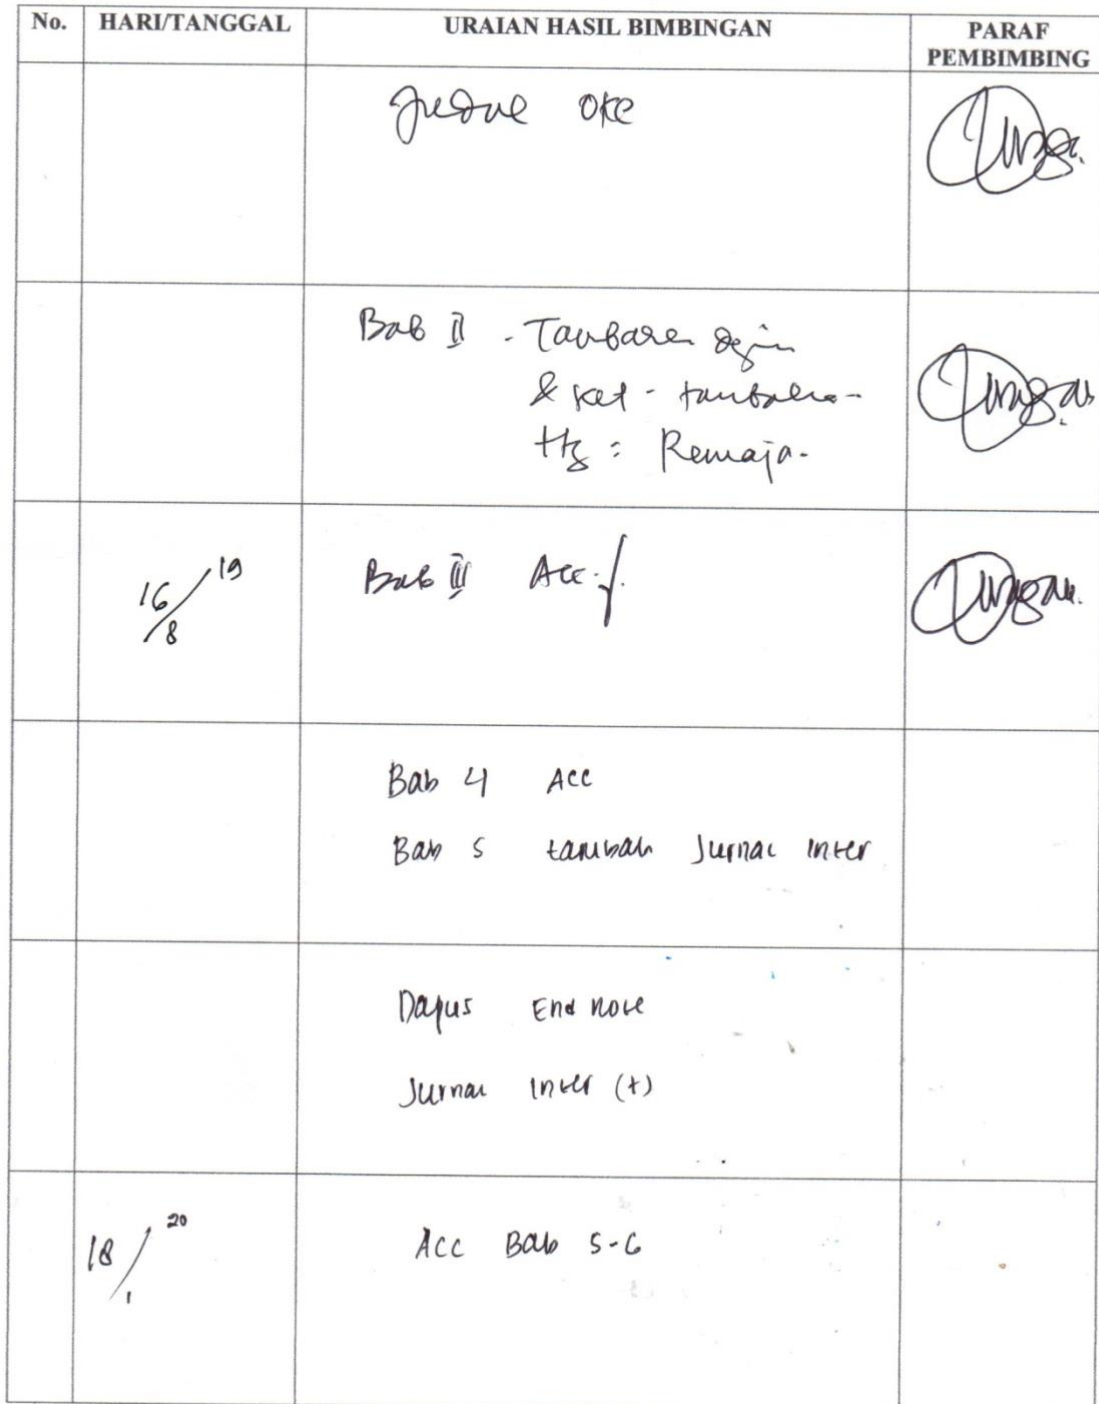 No. HARI/TANGGAL URAIAN HASIL BIMBINGAN PARAF PEMBIMBING
Judul oke
Bab II -
& ket -
Remaja -
16/8 19 Bab III Acc
Bab 4 Acc
Bab 5 tambah Jurnal inter
Dapus End note
Jurnal inter (+)
18/1 20 Acc Bab 5-6